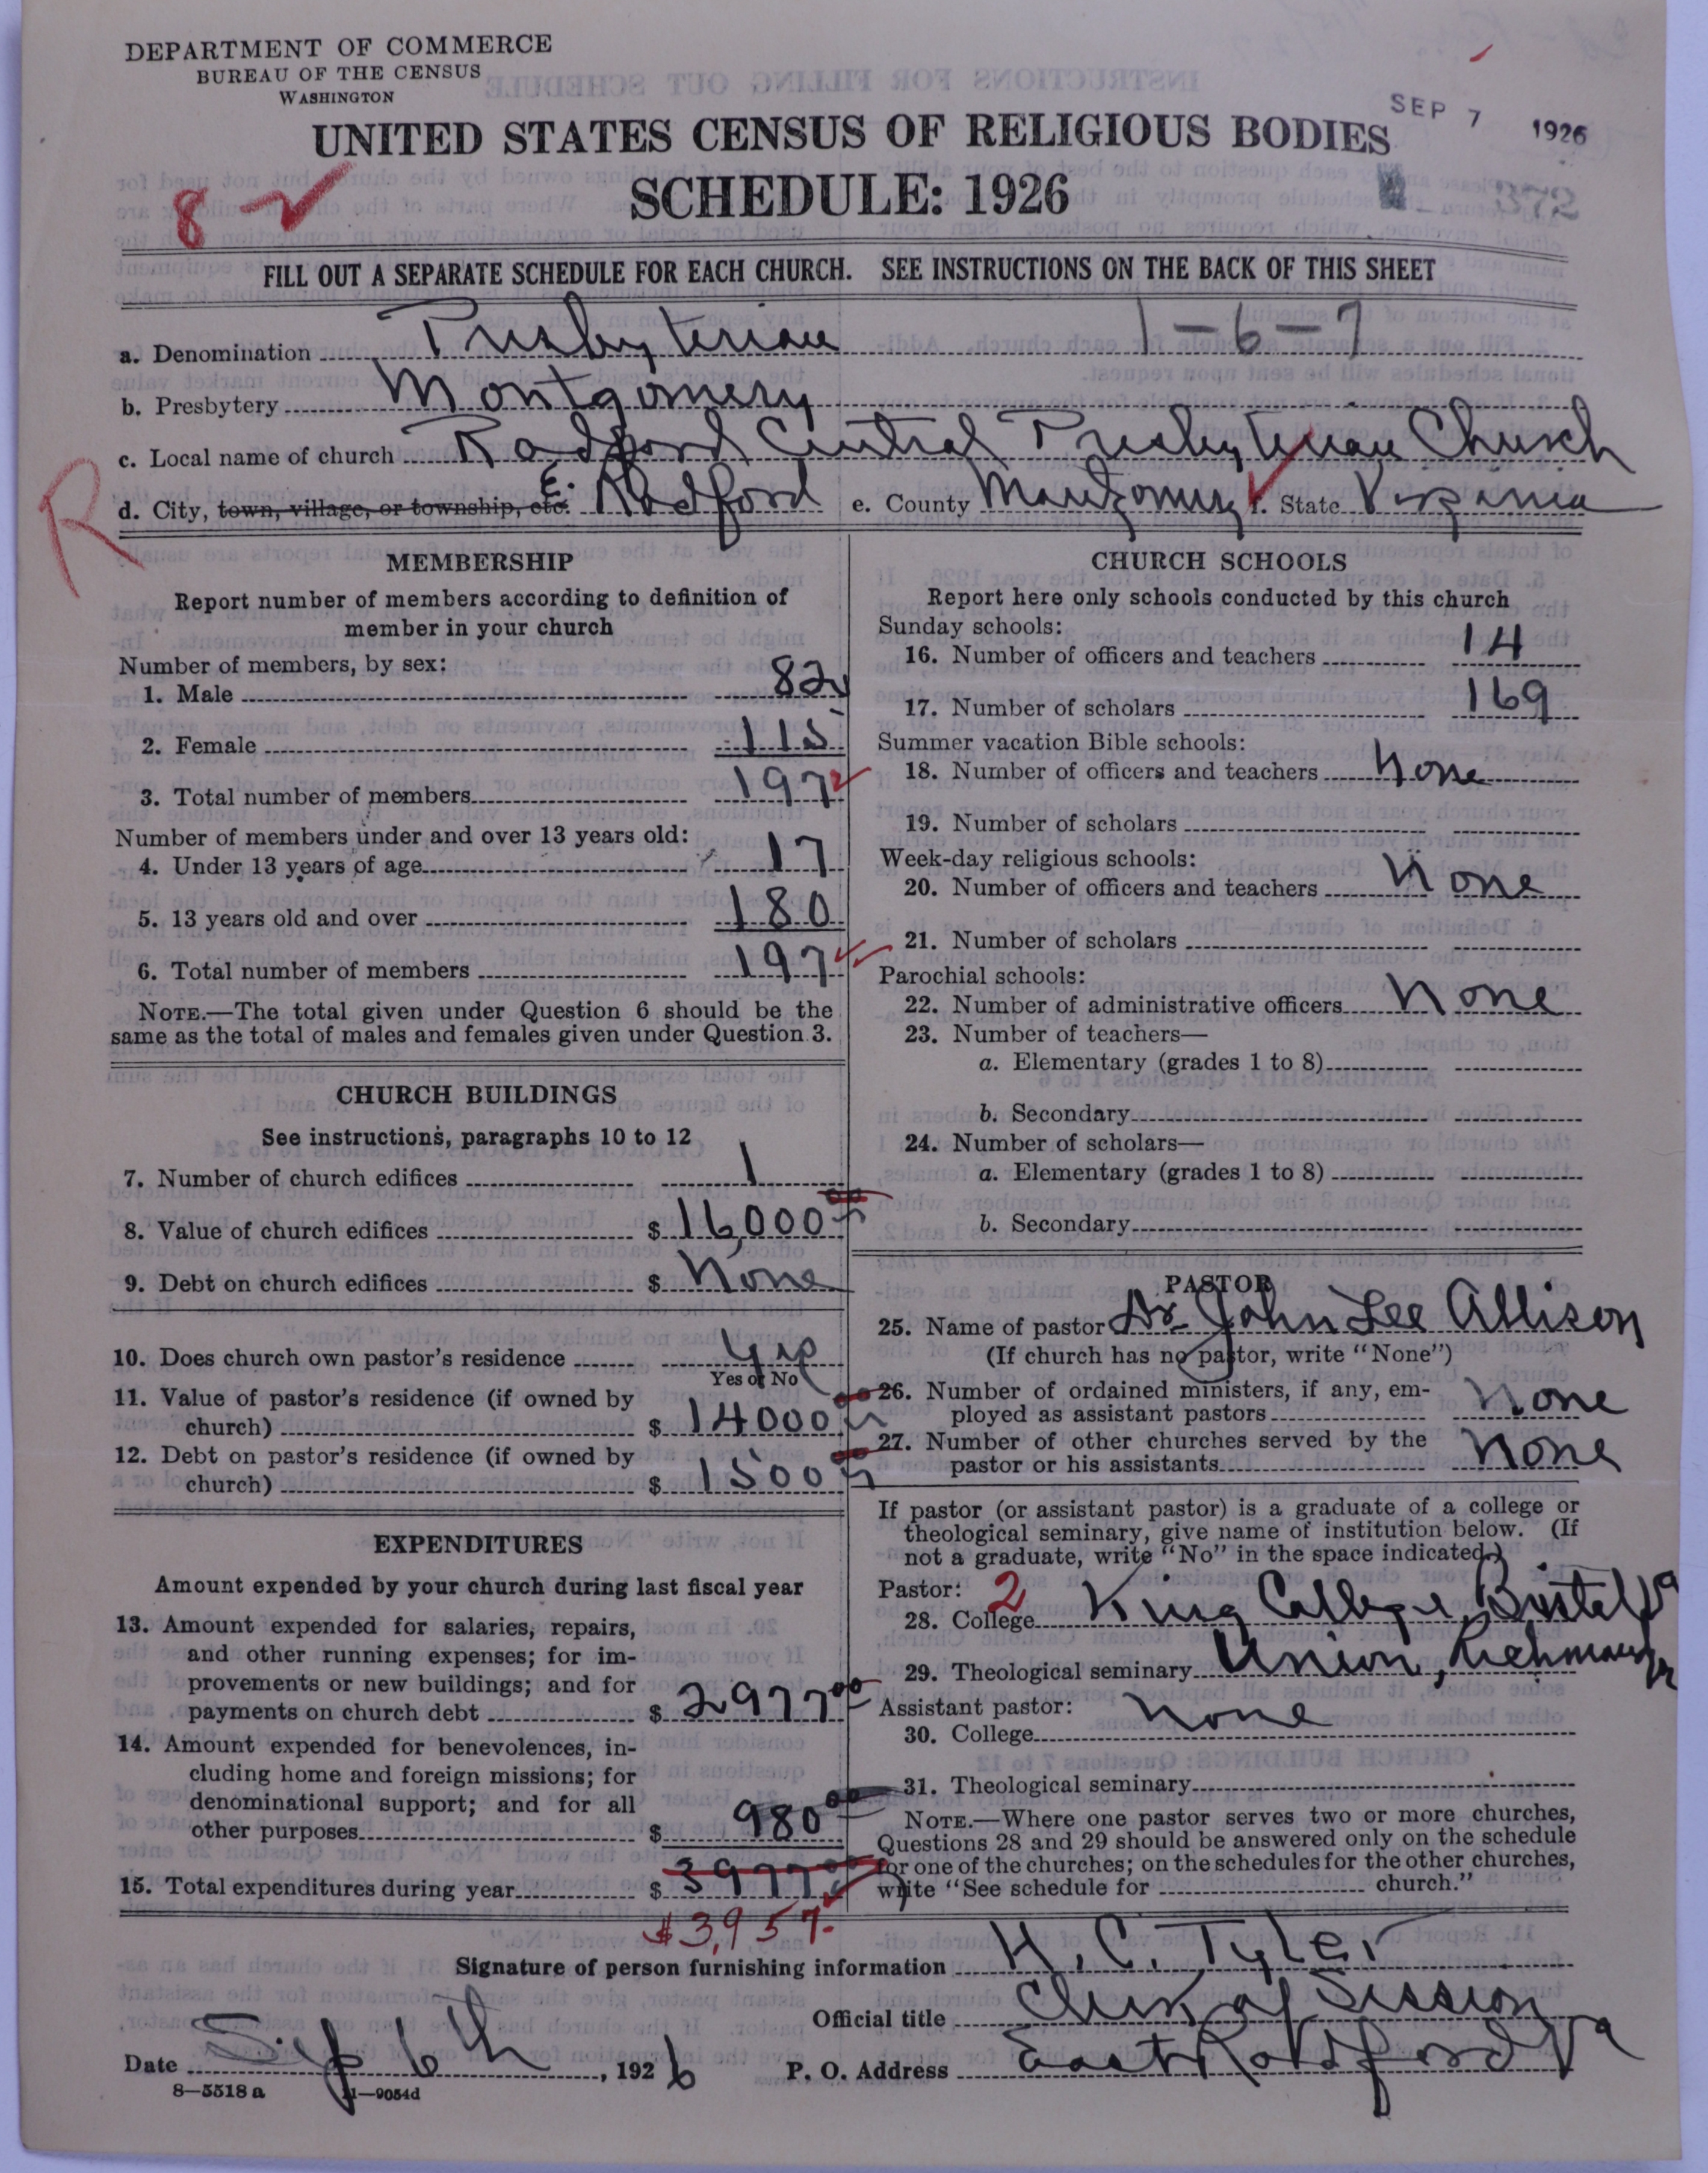 DEPARTMENT OF COMMERCE
BUREAU OF THE CENSUS
WASHINGTON
UNITED STATES CENSUS OF RELIGIOUS BODIES
SEP 7 1926
SCHEDULE: 1926
372
8 2
FILL OUT A SEPARATE SCHEDULE FOR EACH CHURCH. SEE INSTRUCTIONS ON THE BACK OF THIS SHEET
a. Denomination Presbyterian 1-6-7
b. Presbytery Montgomery
c. Local name of church Radford Central Presbyterian Church
R
d. City, town, village, or township, etc. E. Radford e. County Montgomery f. State Virginia
MEMBERSHIP
Report number of members according to definition of
member in your church
Number of members, by sex:
1. Male 82
2. Female 115
3. Total number of members 197
Number of members under and over 13 years old:
4. Under 13 years of age 17
5. 13 years old and over 180
6. Total number of members 197
NOTE.—The total given under Question 6 should be the
same as the total of males and females given under Question 3.
CHURCH BUILDINGS
See instructions, paragraphs 10 to 12
7. Number of church edifices 1
8. Value of church edifices $ 16,000 00
9. Debt on church edifices $ None
10. Does church own pastor's residence Yes
Yes or No
11. Value of pastor's residence (if owned by
church) $ 14000 00
12. Debt on pastor's residence (if owned by
church) $ 1500 00
EXPENDITURES
Amount expended by your church during last fiscal year
13. Amount expended for salaries, repairs,
and other running expenses; for im-
provements or new buildings; and for
payments on church debt $ 2977 00
14. Amount expended for benevolences, in-
cluding home and foreign missions; for
denominational support; and for all
other purposes $ 980 00
15. Total expenditures during year $ 3977 00
$3,957-
CHURCH SCHOOLS
Report here only schools conducted by this church
Sunday schools:
16. Number of officers and teachers 14
17. Number of scholars 169
Summer vacation Bible schools:
18. Number of officers and teachers None
19. Number of scholars
Week-day religious schools:
20. Number of officers and teachers None
21. Number of scholars
Parochial schools:
22. Number of administrative officers None
23. Number of teachers—
a. Elementary (grades 1 to 8)
b. Secondary
24. Number of scholars—
a. Elementary (grades 1 to 8)
b. Secondary
PASTOR
25. Name of pastor Dr John Lee Allison
(If church has no pastor, write "None")
26. Number of ordained ministers, if any, em-
ployed as assistant pastors None
27. Number of other churches served by the
pastor or his assistants None
If pastor (or assistant pastor) is a graduate of a college or
theological seminary, give name of institution below. (If
not a graduate, write "No" in the space indicated.)
Pastor: 2
28. College King College Bristol Va
29. Theological seminary Union, Richmond Va
Assistant pastor:
30. College None
31. Theological seminary
NOTE.—Where one pastor serves two or more churches,
Questions 28 and 29 should be answered only on the schedule
for one of the churches; on the schedules for the other churches,
write "See schedule for church."
Signature of person furnishing information H. C. Tyler
Official title Clerk of Session
Date Sep 6th, 1926 P. O. Address East Radford Va
8-5518 a 11-9054d